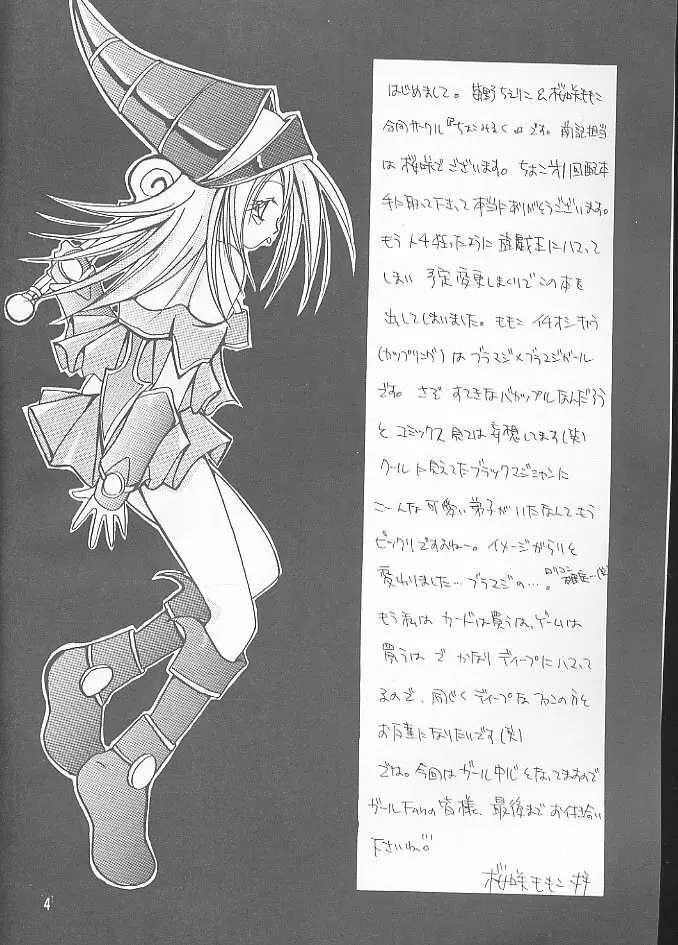 はじめまして。 野ちえりこ&桜咲ももこ
合同サークル『ちょこみるく』です。前記担当
は桜咲でございます。ちょこオ1回配本
手に取って下さって本当にありがとうございます。
もう人生狂ったように遊戯王にハマって
しまい 予定変更しまくりでこの本を
出してしまいました。ももこ イチオシキャラ
(カップリング)はブラマジ×ブラマジガール
です。さぞ すてきなバカップルなんだろう
と コミックス 見ては妄想してます(笑)
クールに見えてたブラックマジシャンに
こーんな可愛い弟子がいたなんてもう
ビックリですよねー。イメージがらりと
変わりました…ブラマジの…。ロリコン確定…(笑)
もう私は カードは買うは、ゲームは
買うは で かなり ディープにハマって
るので、同じく ディープな ファンの方と
お友達になりたいです(笑)
では。今回はガール中心となってますので
ガールFanの皆様、最後まで お付き合い
下さいね。
桜咲ももこ 拝
4